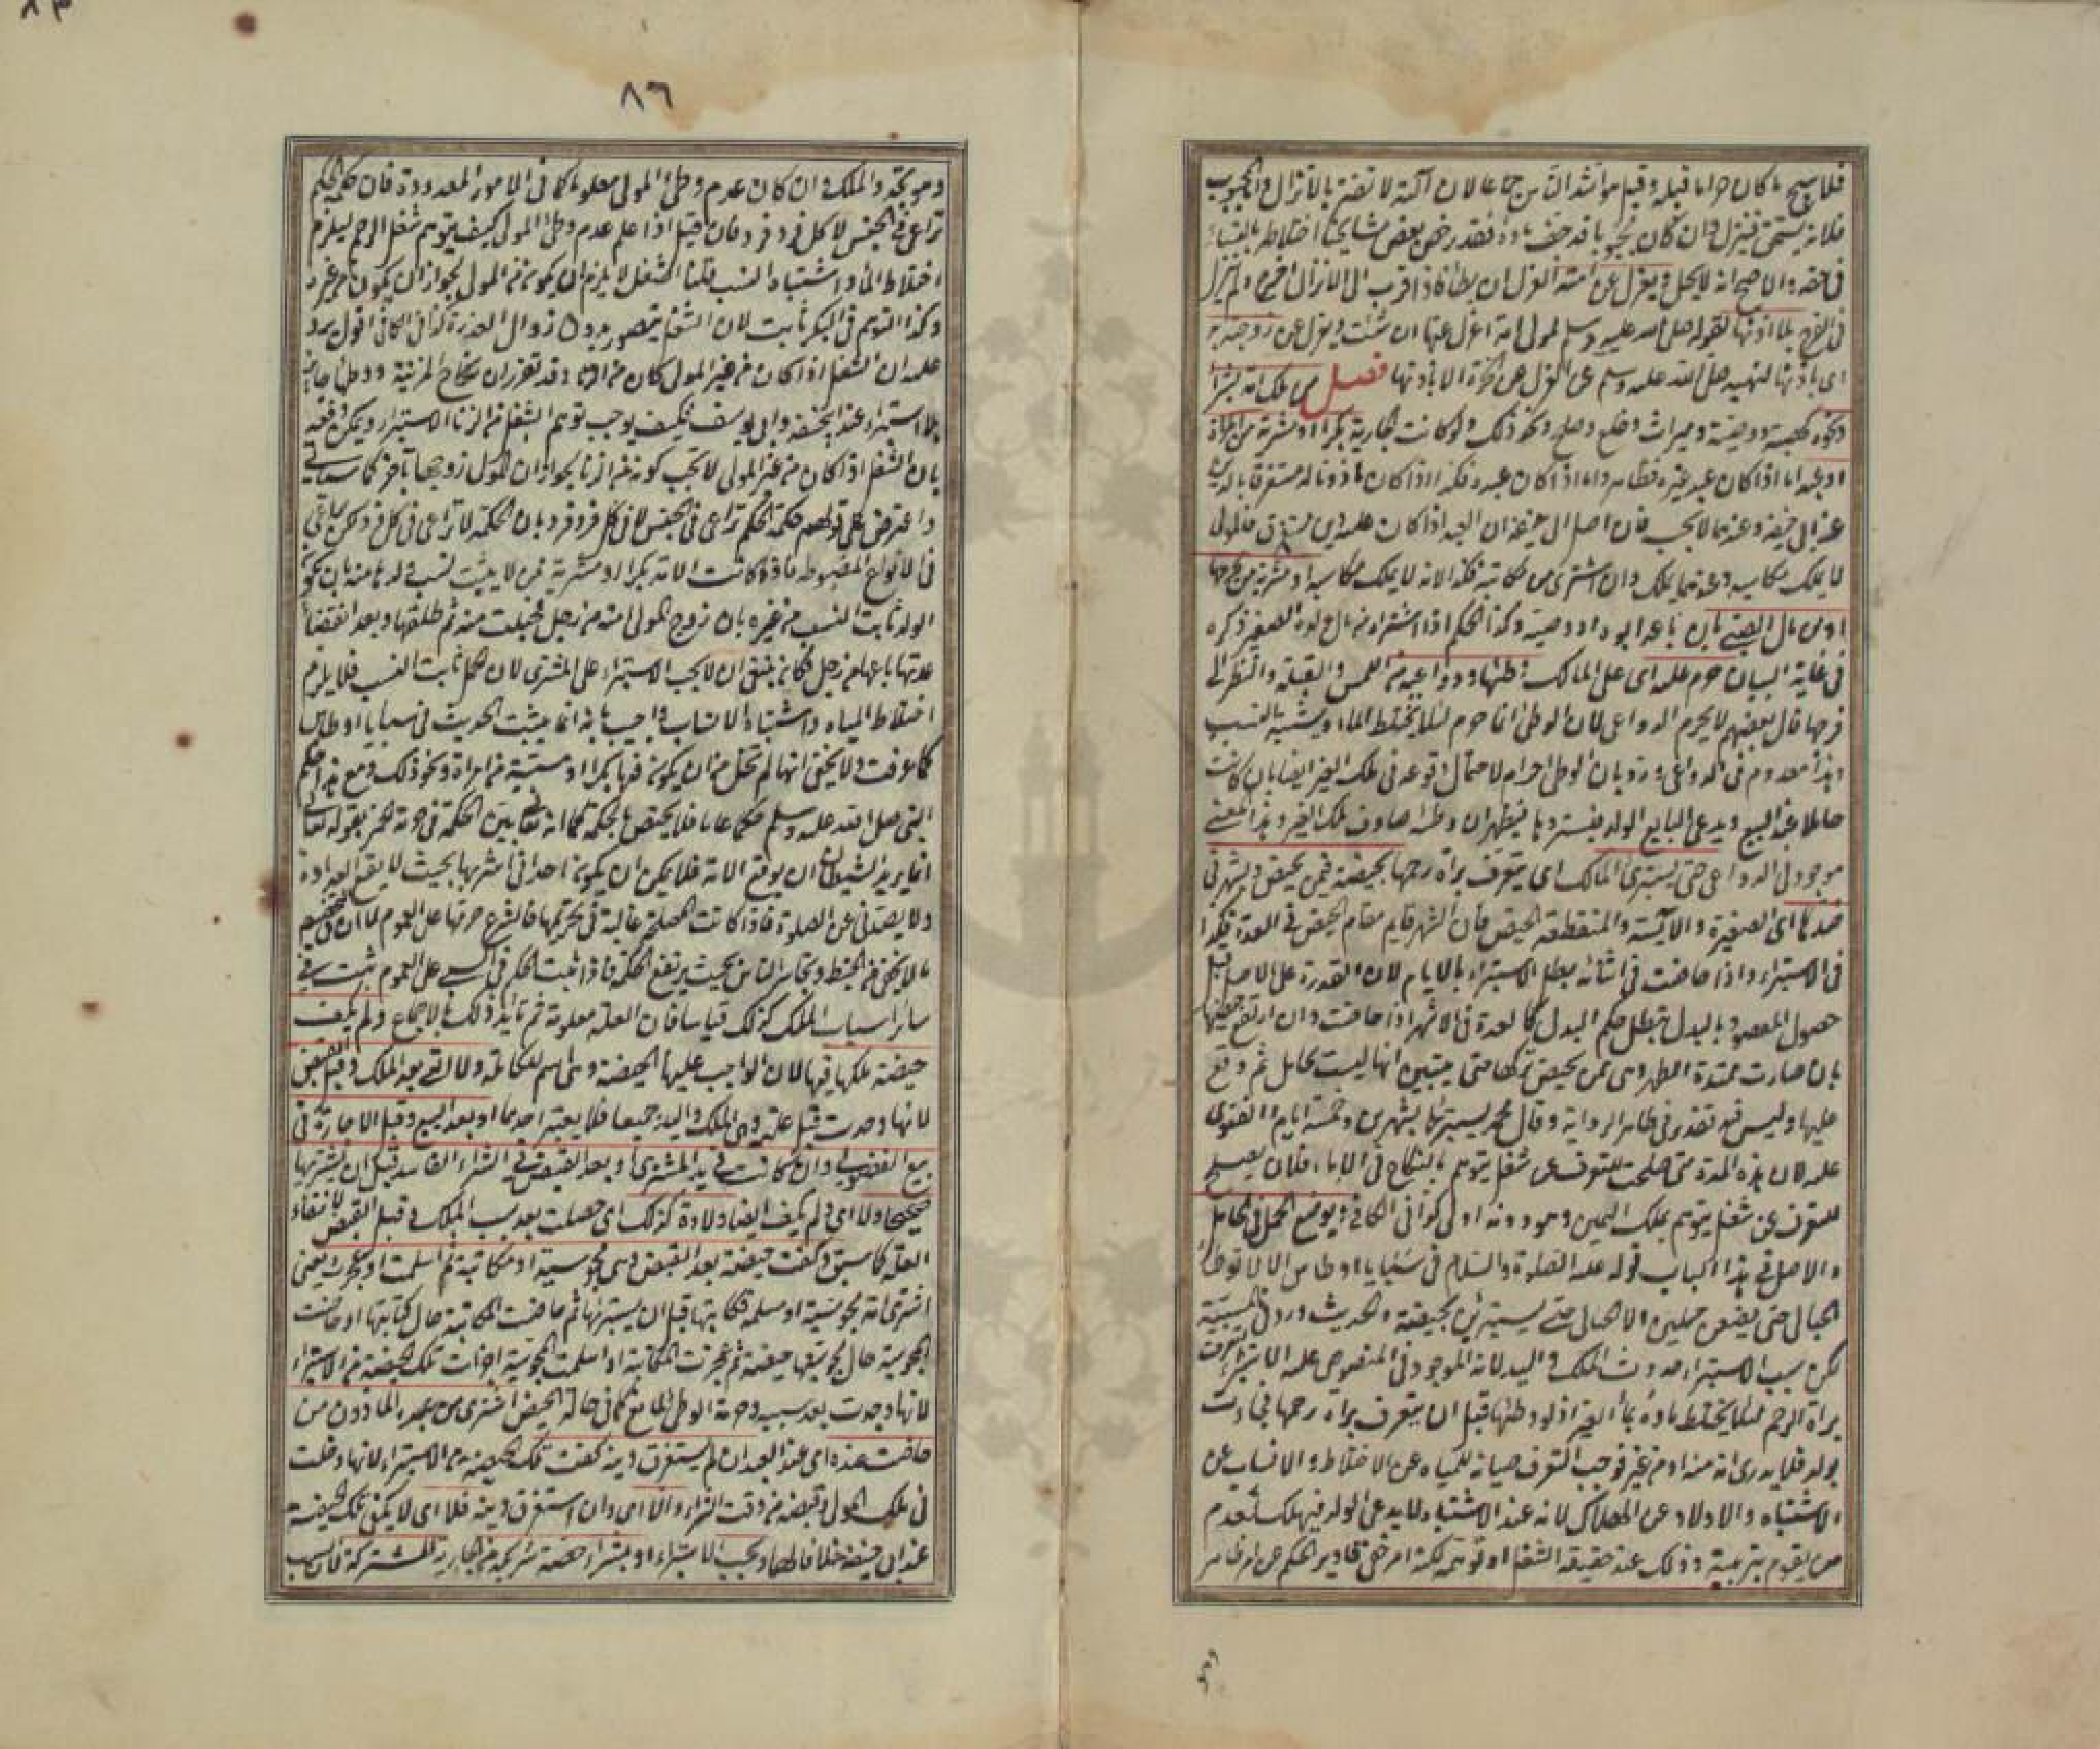 فلا يبيح ما كان حراما قبله وقيل هو اشد الناس جماعا لان آلته لا تفتر بالانزال والمجبوب
فلانه يسحق فينزل وان كان مجبوبا قد جف ماؤه فقد رخص بعض مشايخنا اختلاطه بالنساء
في حقه والاصح انه لا يحل ويعزل عن امته العزل ان يطأ فاذا قرب الى الانزال اخرج ولم ينزل
في الفرج بلا اذنها لقوله صلى الله عليه وسلم لمولى امة اعزل عنها ان شئت ويعزل عن زوجته به
اى باذنها لنهيه صلى الله عليه وسلم عن العزل عن الحرة الا باذنها فصل من ملك امة بشراء
ونحوه كهبة ووصية وميراث وخلع وصلح ونحو ذلك ولو كانت الجارية بكرا او مشرية من امرأة
او عبد اما اذا كان عبد غيره فظاهر واما اذا كان عبده فكذا اذا كان مأذونا له مستغرقا بالدين
عند ابى حنيفة وعندهما لا يجب فان اصل ابى حنيفة ان العبد اذا كان عليه دين مستغرق فالمولى
لا يملك مكاسبه وعندهما يملك وان اشترى من مكاتبه فكذا لانه لا يملك مكاسبه او مشرية من محرمها
او من مال الصبى بان باعه ابوه او وصيه وكذا الحكم اذا اشتراه من مال ولده الصغير ذكره
في غاية البيان حرم عليه اى على المالك وطئها ودواعيه من اللمس والقبلة والنظر الى
فرجها قال بعضهم لا يحرم الدواعى لان الوطئ انما حرم لئلا يختلط الماء ويشتبه النسب
وهذا معدوم في الدواعى ورد بان الوطئ حرام لاحتمال وقوعه في ملك الغير ايضا بان كانت
حاملا عند البيع ويدعى البايع الولد فيستردها فيظهر ان وطئه صادف ملك الغير وهذا المعنى
موجود في الدواعى حتى يستبرئ المالك اى يتعرف براءة رحمها بحيضة فيمن يحيض وبشهر في
ضدها اى الصغيرة والآيسة والمنقطعة الحيض فان الشهر قايم مقام الحيض في العدة فكذا
في الاستبراء واذا حاضت في اثنائه بطل الاستبراء بالايام لان القدرة على الاصل قبل
حصول المقصود بالبدل تبطل حكم البدل كالعدة في الاشهر اذا حاضت وان ارتفع حيضها
بان صارت ممتدة الطهر وهى ممن يحيض تركها حتى يتبين انها ليست بحامل ثم وقع
عليها وليس فيه تقدير في ظاهر الرواية وقال محمد يستبرئها بشهرين وخمسة ايام والفتوى
عليه لان هذه المدة متى صلحت للتعرف عن شغل يتوهم بالنكاح في الاماء فلان يصلح
للتعرف عن شغل يتوهم بملك اليمين وهو دونه اولى كذا في الكافي وبوضع الحمل في الحامل
والاصل في هذا الباب قوله عليه الصلوة والسلام في سبايا اوطاس الا لا توطأ
الحبالى حتى يضعن حملهن ولا الحيالى حتى يستبرئن بحيضة والحديث ورد في المسبية
لكن سبب الاستبراء حدوث الملك واليد لانه الموجود في المنصوص عليه والاستبراء لتعرف
براءة الرحم لئلا يختلط ماؤه بماء الغير اذ لو وطئها قبل ان يتعرف براءة رحمها فجاءت
بولد فلا يدرى انه منه او من غيره فوجب التعرف صيانة للمياه عن الاختلاط والانساب عن
الاشتباه والاولاد عن الهلاك لانه عند الاشتباه لا يدعى الولد فيهلك لعدم
من يقوم بتربيته وذلك عند حقيقة الشغل او توهمه لكنه امر خفى فادير الحكم على امر ظاهر
وهو
٨٦
وهو تجدد الملك وان كان عدم وطئ المولى معلوما كما في الامور المعدودة فان حكمة الحكم
تراعى في الجنس لا كل فرد فرد فان قيل اذا علم عدم وطئ المولى كيف يتوهم شغل الرحم ليلزم
اختلاط الماء واشتباه النسب قلنا الشغل لا يلزم ان يكون من المولى لجواز ان يكون من غيره
وكذا التوهم في البكر ثابت لان الشغل يتصور بدون زوال العذرة كذا في الكافي اقول يرد
عليه ان الشغل اذا كان من غير المولى كان من الزنا وقد تقرر ان نكاح المزنية ووطئها جائز
بلا استبراء عند ابى حنيفة وابى يوسف فكيف يوجب توهم الشغل من الزنا الاستبراء ويمكن دفعه
بان الشغل اذا كان من غير المولى لا يجب كونه من الزنا لجواز ان المولى زوجها بآخر كما سيأتى
واعترض على قولهم حكمة الحكم تراعى في الجنس لا في كل فرد فرد بان الحكمة لا تراعى في كل فرد لكن تراعى
في الانواع المضبوطة فاذا كانت الامة بكرا او مشرية ممن لا يثبت نسب ولدها منه بان يكون
الولد ثابت النسب من غيره بان زوج المولى امته من رجل فحبلت منه ثم طلقها وبعد انقضاء
عدتها باعها من رجل فكان ينبغى ان لا يجب الاستبراء على المشترى لان الحمل ثابت النسب فلا يلزم
اختلاط المياه واشتباه الانساب واجيب بانه انما يثبت الحديث في سبايا اوطاس
كما عرفت ولا يخفى انها لم تخل من ان يكون فيها بكرا او مسبية من امرأة ونحو ذلك ومع هذا حكم
النبى صلى الله عليه وسلم حكما عاما فلا يختص بالحكمة كما انه تعالى بين الحكمة في حرمة الخمر بقوله تعالى
انما يريد الشيطان ان يوقع الاية فلا يمكن ان يكون احد اني اشربها بحيث لا يقع العداوة
ولا يصدنى عن الصلوة فاذا كانت المصلحة غالبة في تحريمها فالشرع حرمها على العموم لما ان في التخصيص
ما لا يخفى من الخبط وتجاسر الناس بحيث يرتفع الحكمة فاذا ثبت الحكم في السبى على العموم ثبت في
سائر اسباب الملك كذلك قياسا فان العلة معلومة ثم تأيد ذلك بالاجماع ولم يكف
حيضة ملكها فيها لان الواجب عليها الحيضة وهى اسم للكاملة ولا التى بعد الملك وقبل القبض
لانها وجدت قبل علته وهى الملك واليد جميعا فلا يعتبر احدهما او بعد البيع وقبل الاجازة في
بيع الفضولى وان كانت في يد المشترى او بعد القبض في الشراء الفاسد قبل ان يشتريها
صحيحا ولا اى ولم يكف ايضا ولادة كذلك اى حصلت بعد سبب الملك وقبل القبض لانتفاء
العلة كما سبق وكفت حيضة بعد القبض وهى مجوسية او مكاتبة ثم اسلمت او عجزت يعنى
اشترى امة مجوسية او مسلمة فكاتبها قبل ان يستبرئها ثم حاضت المكاتبة حال كتابتها او حاضت
المجوسية حال مجوسيتها حيضة ثم عجزت المكاتبة او اسلمت المجوسية اجزأت تلك الحيضة من الاستبراء
لانها وجدت بعد سببه وحرمة الوطئ لمانع كما في حالة الحيض اشترى من عبده المأذون من
حاضت عنده اى عند العبد ان لم يستغرق دينه كفت تلك الحيضة من الاستبراء لانها دخلت
في ملك المولى وقبضه من وقت الشراء والا اى وان استغرق دينه فلا اى لا يكفى تلك الحيضة
عند ابى حنيفة خلافا لهما ويجب الاستبراء بشراء حصة شريكه من الجارية المشتركة لان السبب